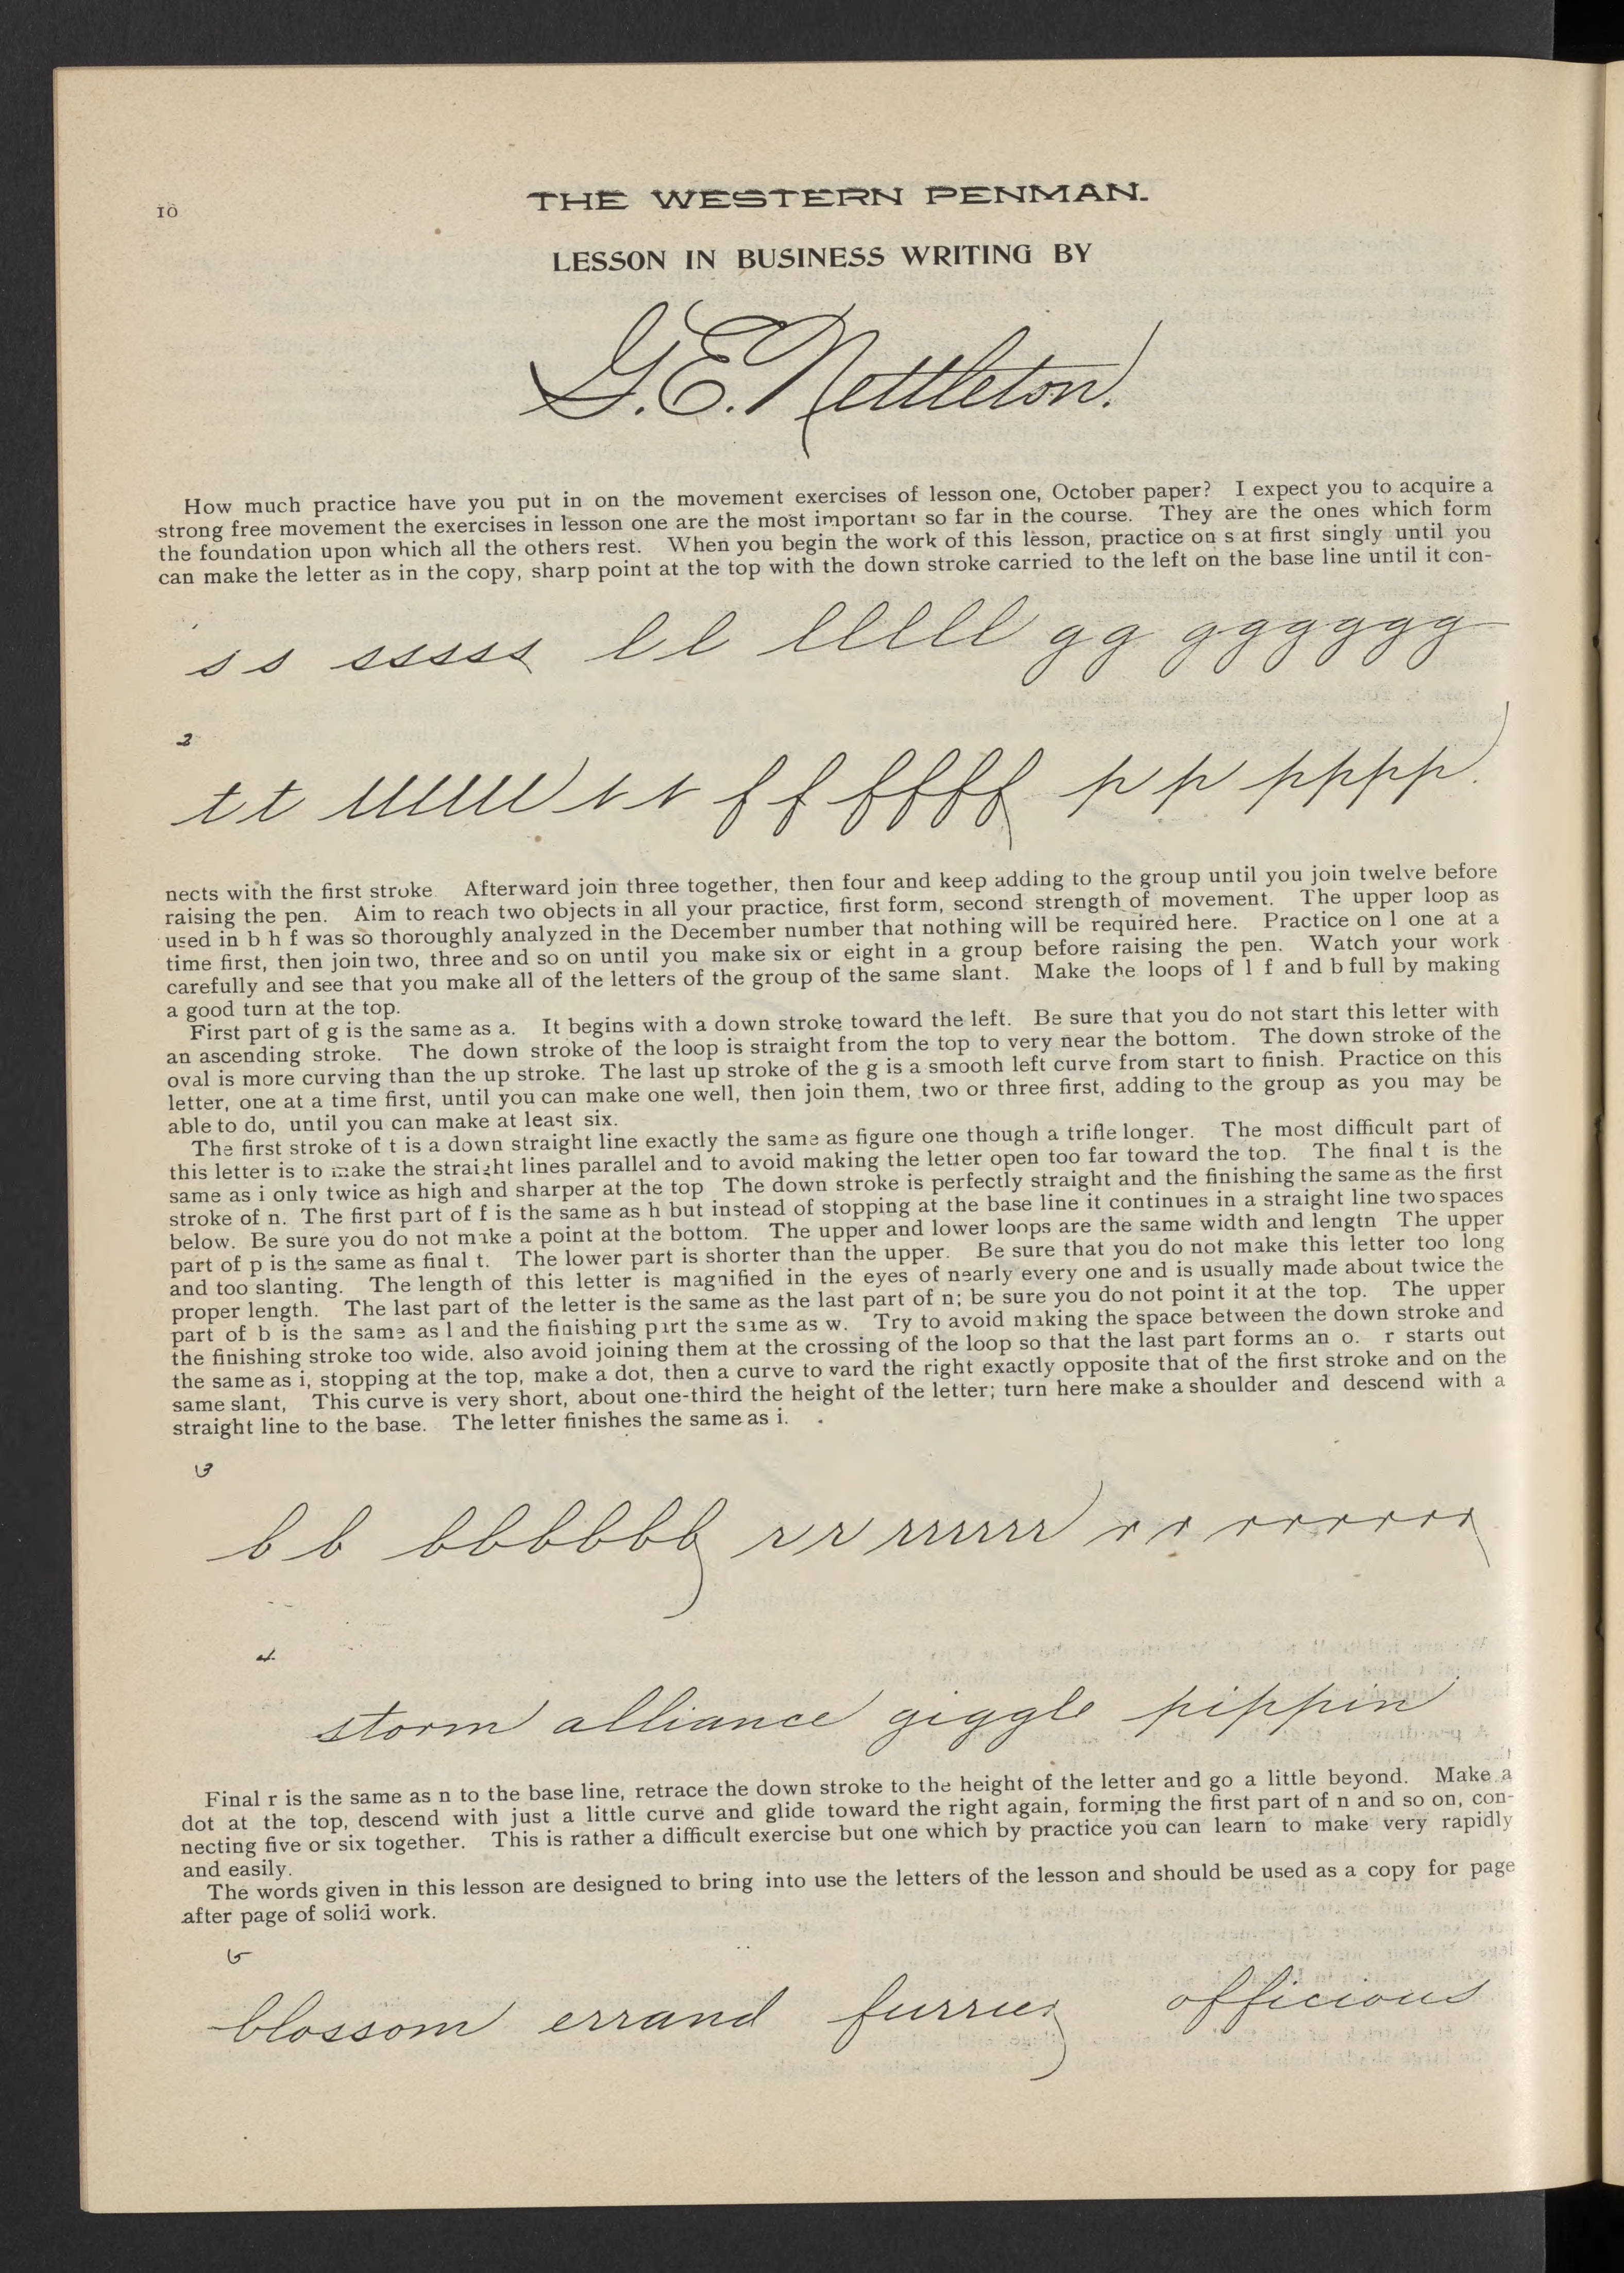 10
THE WESTERN PENMAN.
LESSON IN BUSINESS WRITING BY
G. E. Nettleton.
How much practice have you put in on the movement exercises of lesson one, October paper? I expect you to acquire a
strong free movement the exercises in lesson one are the most important so far in the course. They are the ones which form
the foundation upon which all the others rest. When you begin the work of this lesson, practice on s at first singly until you
can make the letter as in the copy, sharp point at the top with the down stroke carried to the left on the base line until it con-
s s sssss l l lllll g g gggggg
2
t t ttttt t t f f fffff p p pppp.
nects with the first stroke Afterward join three together, then four and keep adding to the group until you join twelve before
raising the pen. Aim to reach two objects in all your practice, first form, second strength of movement. The upper loop as
used in b h f was so thoroughly analyzed in the December number that nothing will be required here. Practice on l one at a
time first, then join two, three and so on until you make six or eight in a group before raising the pen. Watch your work
carefully and see that you make all of the letters of the group of the same slant. Make the loops of l f and b full by making
a good turn at the top.
First part of g is the same as a. It begins with a down stroke toward the left. Be sure that you do not start this letter with
an ascending stroke. The down stroke of the loop is straight from the top to very near the bottom. The down stroke of the
oval is more curving than the up stroke. The last up stroke of the g is a smooth left curve from start to finish. Practice on this
letter, one at a time first, until you can make one well, then join them, two or three first, adding to the group as you may be
able to do, until you can make at least six.
The first stroke of t is a down straight line exactly the same as figure one though a trifle longer. The most difficult part of
this letter is to make the straight lines parallel and to avoid making the letter open too far toward the top. The final t is the
same as i only twice as high and sharper at the top The down stroke is perfectly straight and the finishing the same as the first
stroke of n. The first part of f is the same as h but instead of stopping at the base line it continues in a straight line two spaces
below. Be sure you do not make a point at the bottom. The upper and lower loops are the same width and length The upper
part of p is the same as final t. The lower part is shorter than the upper. Be sure that you do not make this letter too long
and too slanting. The length of this letter is magnified in the eyes of nearly every one and is usually made about twice the
proper length. The last part of the letter is the same as the last part of n; be sure you do not point it at the top. The upper
part of b is the same as l and the finishing part the same as w. Try to avoid making the space between the down stroke and
the finishing stroke too wide, also avoid joining them at the crossing of the loop so that the last part forms an o. r starts out
the same as i, stopping at the top, make a dot, then a curve toward the right exactly opposite that of the first stroke and on the
same slant, This curve is very short, about one-third the height of the letter; turn here make a shoulder and descend with a
straight line to the base. The letter finishes the same as i.
3
b b bbbbbb r r rrrrrr r r rrrrrrr
4
storm alliance giggle pippin
Final r is the same as n to the base line, retrace the down stroke to the height of the letter and go a little beyond. Make a
dot at the top, descend with just a little curve and glide toward the right again, forming the first part of n and so on, con-
necting five or six together. This is rather a difficult exercise but one which by practice you can learn to make very rapidly
and easily.
The words given in this lesson are designed to bring into use the letters of the lesson and should be used as a copy for page
after page of solid work.
5
blossom errand furrier officious